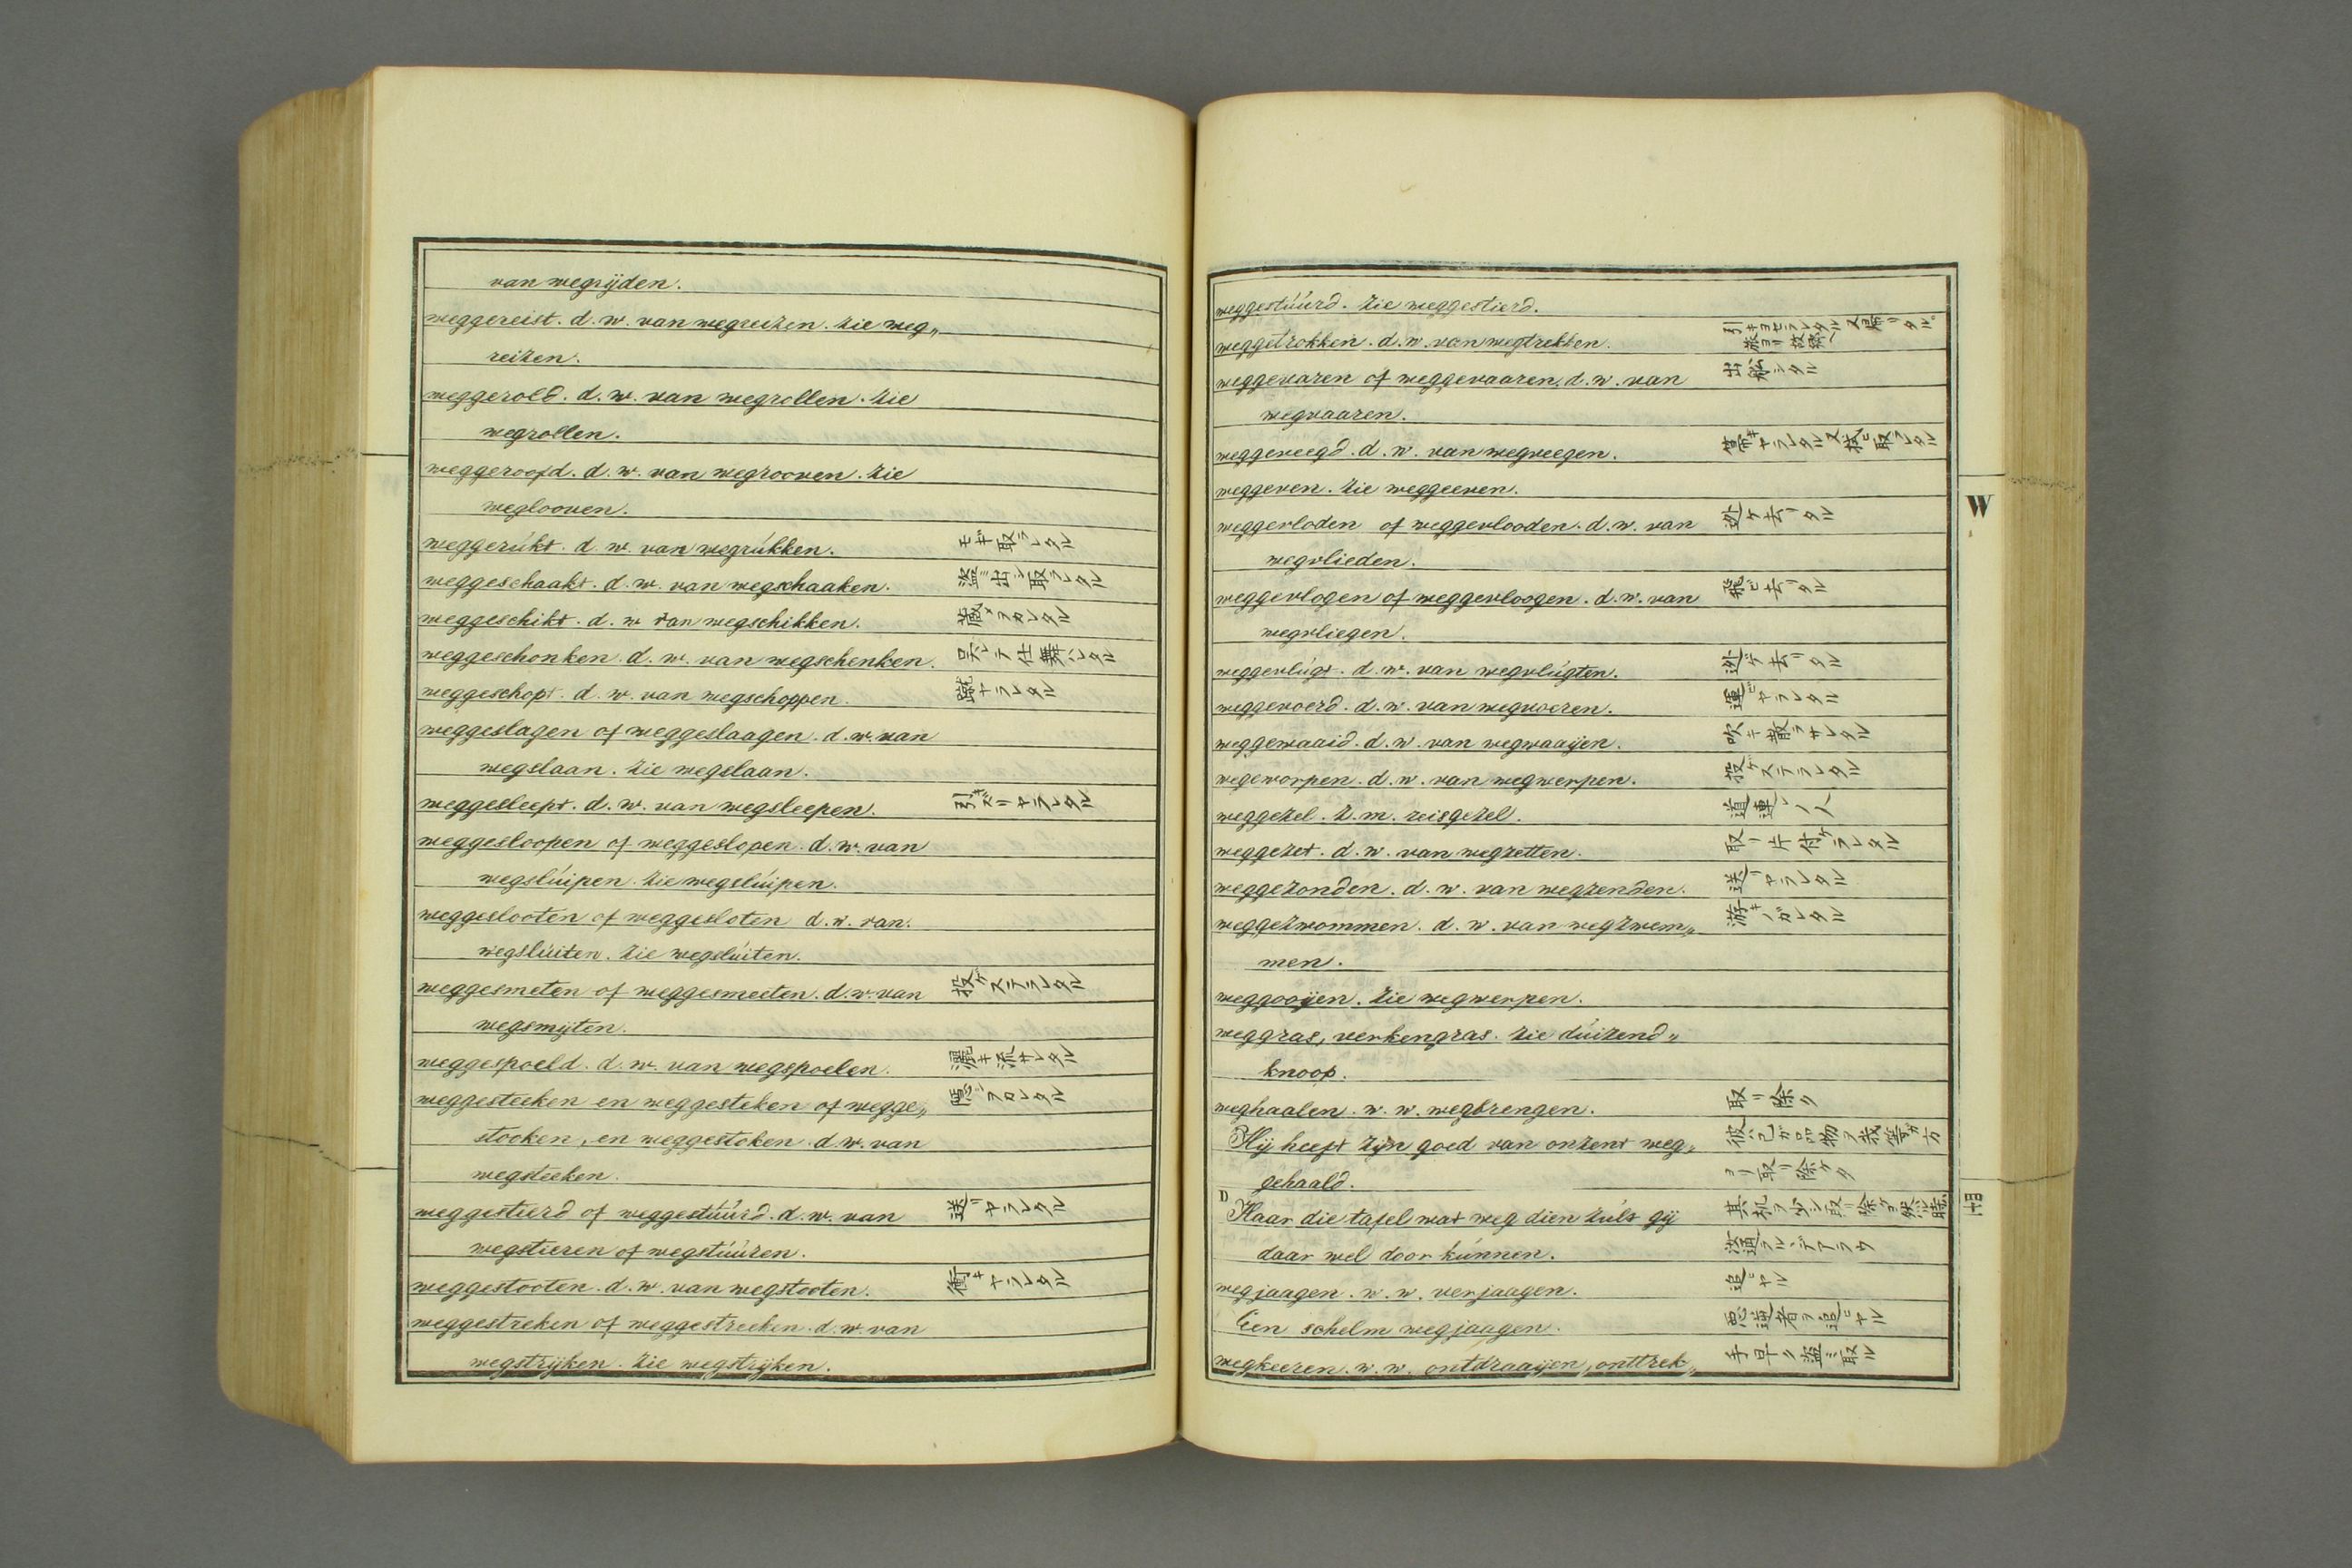 van wegrijden.
weggereist. d. w. van wegreizen. zie weg„
reizen.
weggerold. d. w. van wegrollen. zie
wegrollen.
weggeroofd. d. w. van wegrooven. zie
weglooven.
weggerúkt. d. w. van wegrúkken. モギ取ラレタル
weggeschaakt. d. w. van wegschaaken. 盗ミ出シ取ラレタル
weggeschikt. d. w van wegschikken. 蔵メヲカレタル
weggeschonken. d. w. van wegschenken. 呉レテ仕舞ハレタル
weggeschopt. d. w. van wegschoppen. 蹴ヤラレタル
weggeslagen of weggeslaagen. d. w. van
wegslaan. zie wegslaan.
weggesleept. d. w. van wegsleepen. 引キズリヤラレタル
weggesloopen of weggeslopen. d. w. van
wegslúipen. zie wegslúipen.
weggeslooten of weggesloten d. w. van.
wegslúiten. zie wegslúiten.
weggesmeten of weggesmeeten. d. w. van 投ゲステラレタル
wegsmijten.
weggespoeld. d. w. van wegspoelen. 流サレタル
weggesteeken en weggesteken of wegge„ 隠シヲカレタル
stooken, en weggestoken. d. w. van
wegsteeken.
weggestierd of weggestúúrd. d. w. van 送リヤラレタル
wegstieren of wegstúúren.
weggestooten. d. w. van wegstooten. 衝キヤラレタル
weggestreken of weggestreeken. d. w. van
wegstrijken. zie wegstrijken.
weggestúúrd. zie weggestierd.
weggetrokken. d. w. van wegtrekken. 引キヨセラレタル又帰リタル
weggevaren of weggevaaren. d. w. van 出船シタル
wegvaaren.
weggeveegd. d. w. van wegveegen. 帚キヤラレタル又拭ヒ取ラレタル
weggeven. zie weggeeven.
weggevloden of weggevlooden. d. w. van 迯ケ去リタル
wegvlieden.
weggevlogen of weggevloogen. d. w. van 飛ビ去リタル
wegvliegen.
weggevlúgt. d. w. van wegvlúgten. 迯ゲ去リタル
weggevoerd. d. w. van wegvoeren. 運ビヤラレタル
weggewaaid. d. w. van wegwaaijen. 吹キ散ラサレタル
wegeworpen. d. w. van wegwerpen. 投ゲステラレタル
weggezel. z. m. reisgezel. 道連レノ人
weggezet. d. w. van wegzetten. 取リ片付ケラレタル
weggezonden. d. w. van wegzenden. 送リヤラレタル
weggezwommen. d. w. van wegzwem„ 游キノガレタル
men.
weggooijen. zie wegwerpen.
weggras, verkengras. zie dúizend„
knoop.
weghaalen. w. w. wegbrengen. 取リ除ク
Hij heeft zijn goed van onzent weg„ 彼レ己ガ品物ヲ我等ガ方
gehaald. ヨリ取リ除ケタ
D Haar die tafel wat weg dien zúlt gij 其机ヲ少シ取リ除ケヨ然ル時ハ
daar wel door kúnnen. 汝通ラルヽデアラウ
wegjaagen. w. w. verjaagen. 追ヒヤル
Een schelm wegjaagen. 悪逆者ヲ追ヒヤル
wegkeeren. w. w. ontdraaijen, onttrek„ 手早ク盗ミ取ル
W